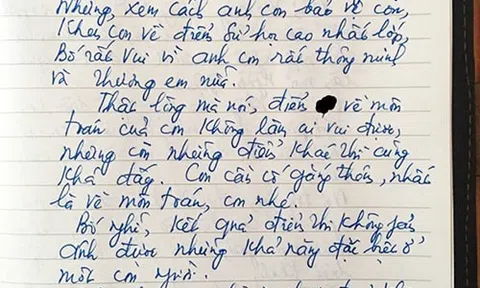 Nhưng, xem cách anh con bảo vệ con,
khen con về điểm Sử học cao nhất lớp,
Bố rất vui vì anh con rất thông minh
và thương em nữa.
Thật lòng mà nói, điểm về môn
toán của con không làm ai vui được,
nhưng còn những điểm khác thì cũng
khá đấy. Con cần cố gắng thêm, nhất
là về môn toán, con nhé.
Bố nghĩ, kết quả điểm thi không phản
ánh được những khả năng đặc biệt ở
mỗi con người.